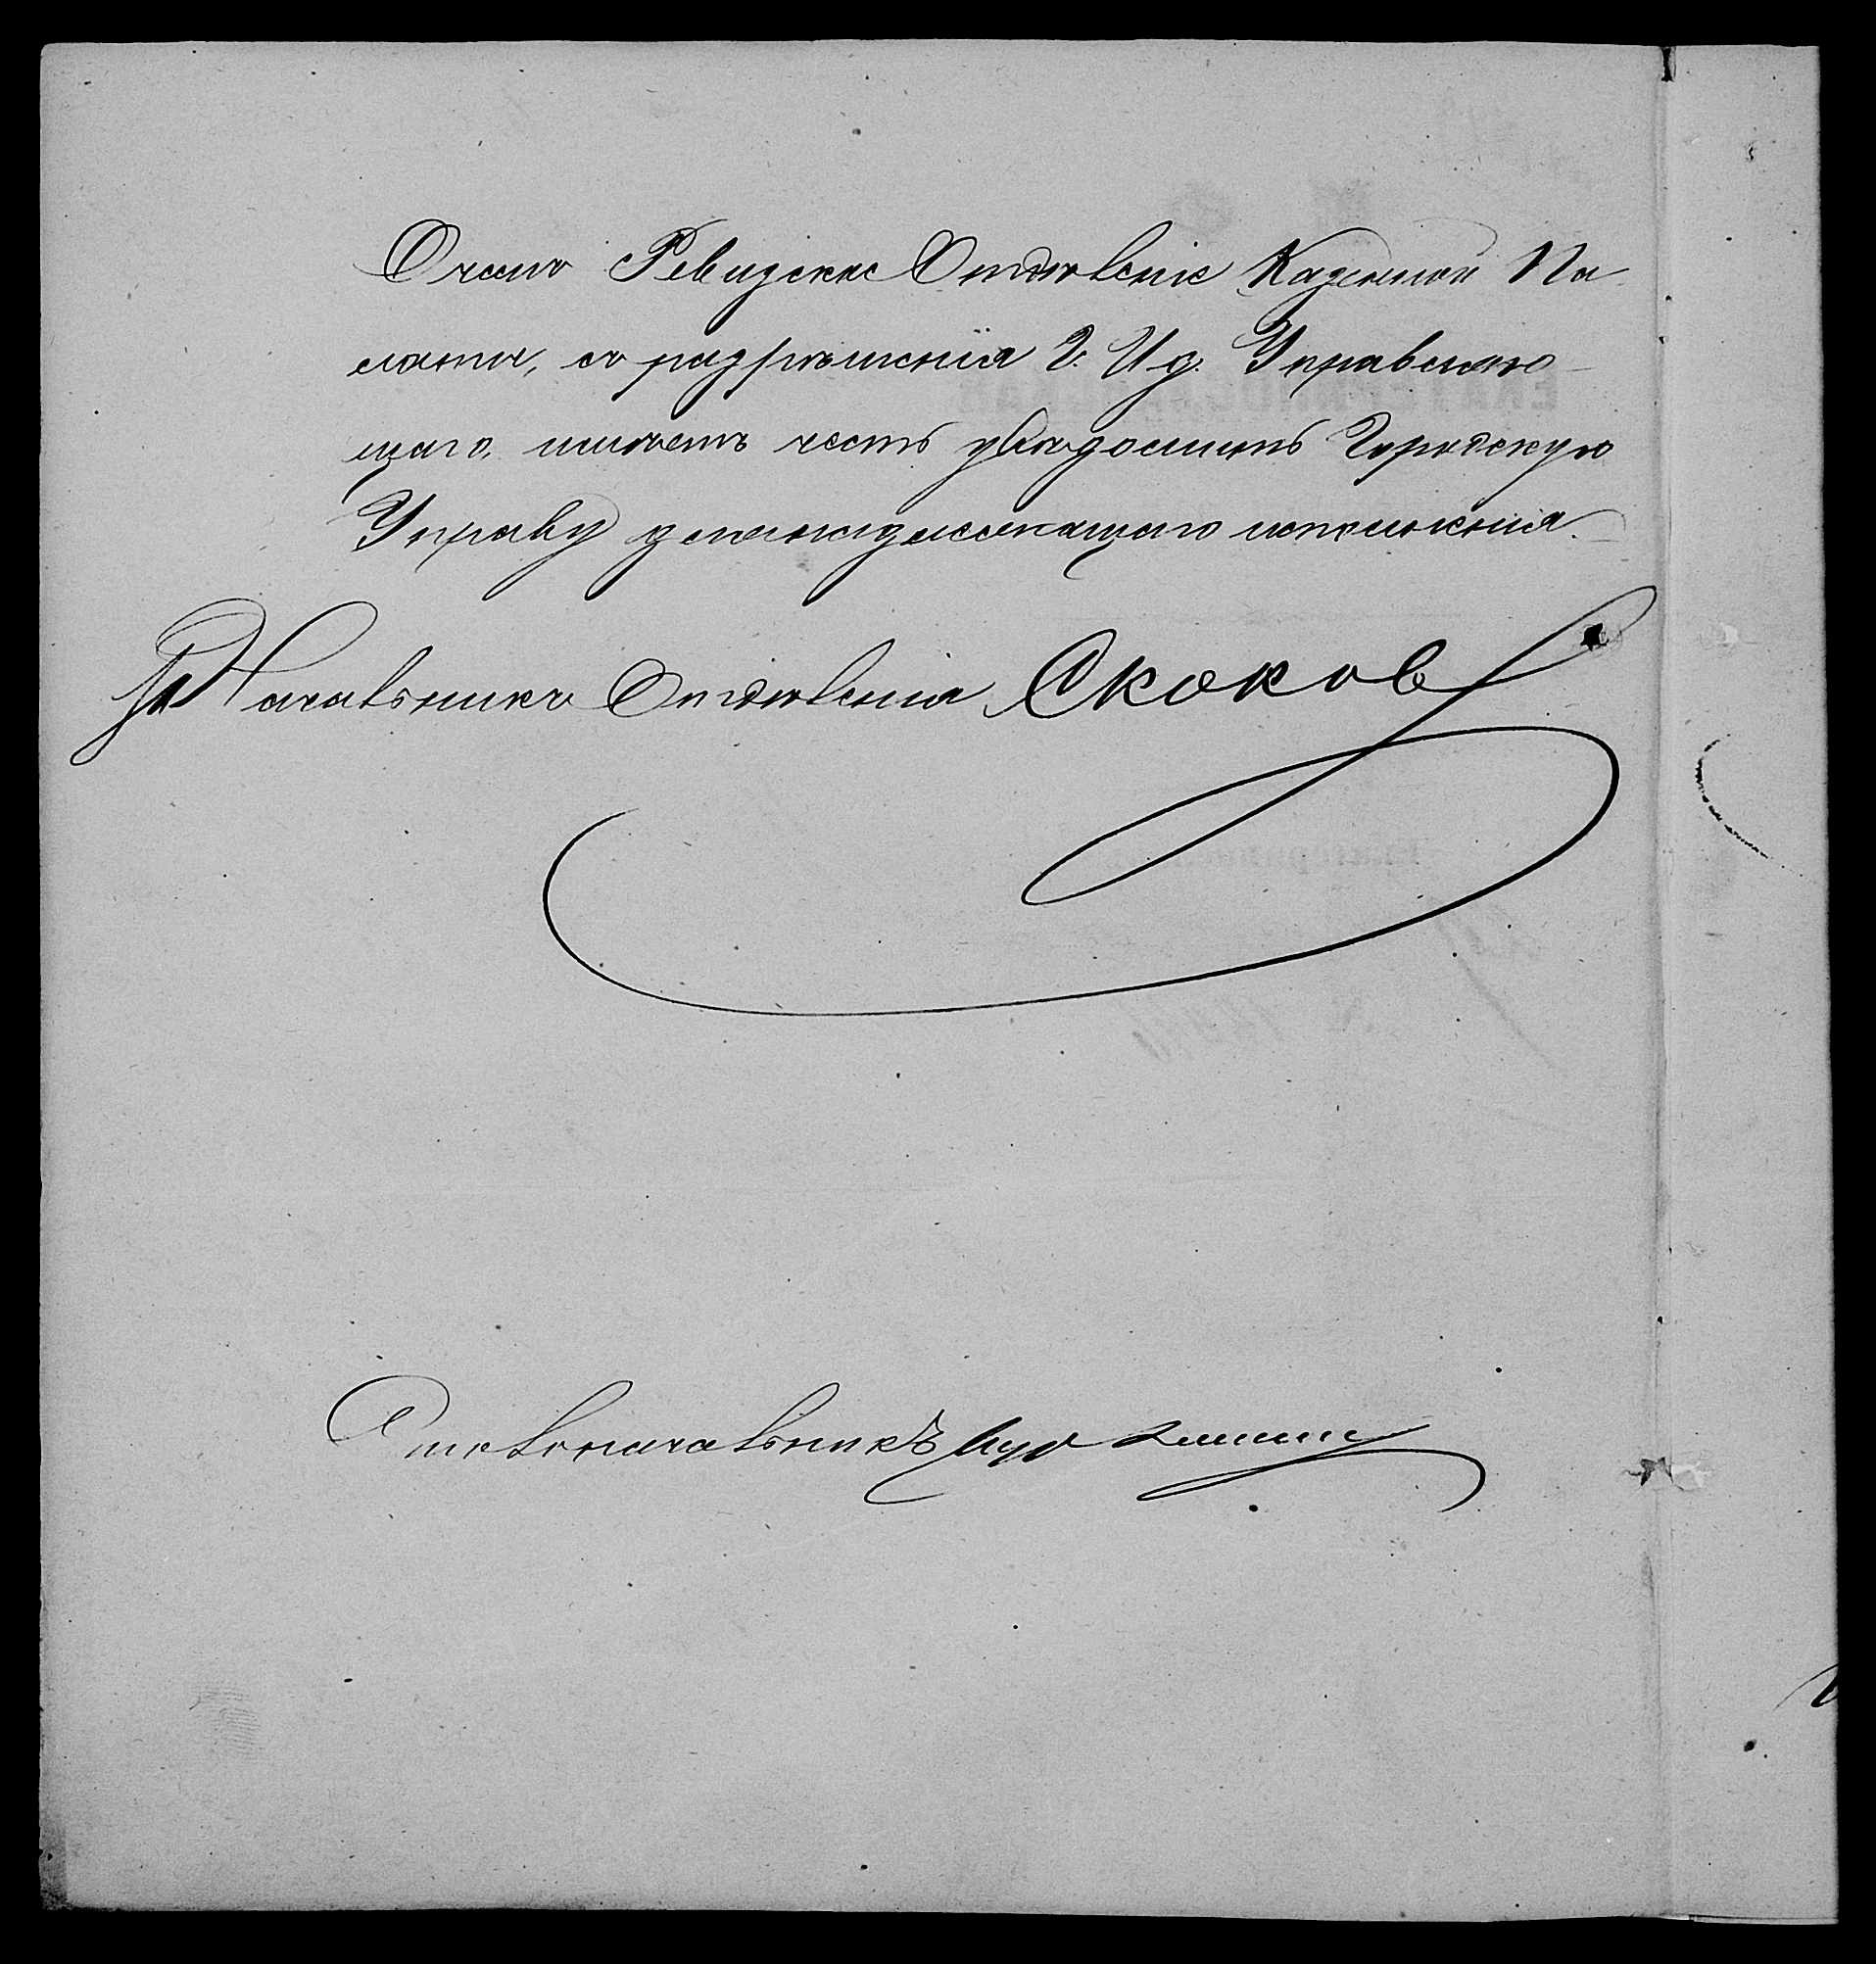 О чемъ Ревизское Отдѣленіе Казенной Па-
латы, съ разрѣшенія Г. И д. Управляю-
щаго, имѣетъ честь увѣдомить Городскую
Управу для надлежащаго исполненія.
За Начальника Отдѣленія Скоков
Столоначальникъ